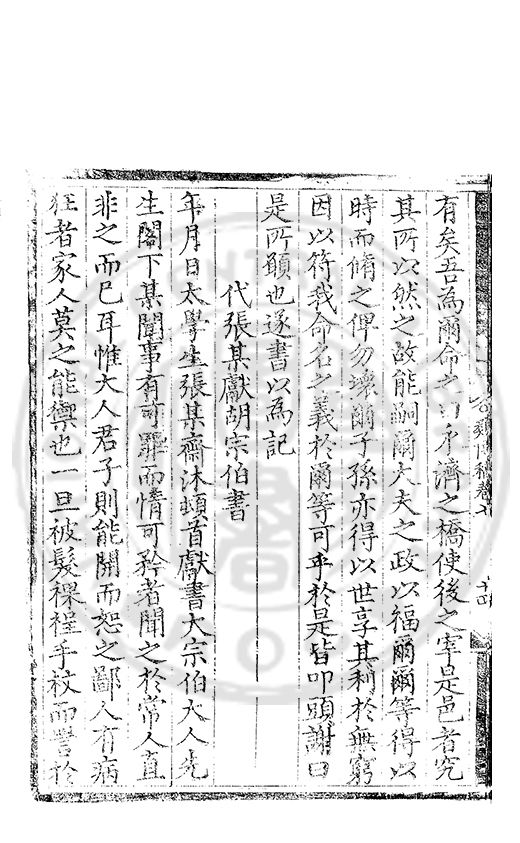 有矣吾為爾命之曰承濟之橋使後之宰是邑者究
其所以然之故能嗣爾大夫之政以福爾爾等得以
時而脩之俾勿壞爾子孫亦得以世享其利於無窮
因以符我命名之義於爾等可乎於是皆叩頭謝曰
是所願也遂書以為記
代張某獻胡宗伯書
年月日太學生張某齋沐頓首獻書大宗伯大人先
生閣下某聞事有可罪而情可矜者聞之於常人直
非之而已耳惟大人君子則能開而恕之鄙人有病
狂者家人莫之能禦也一旦被髮裸裎手杖而詈於